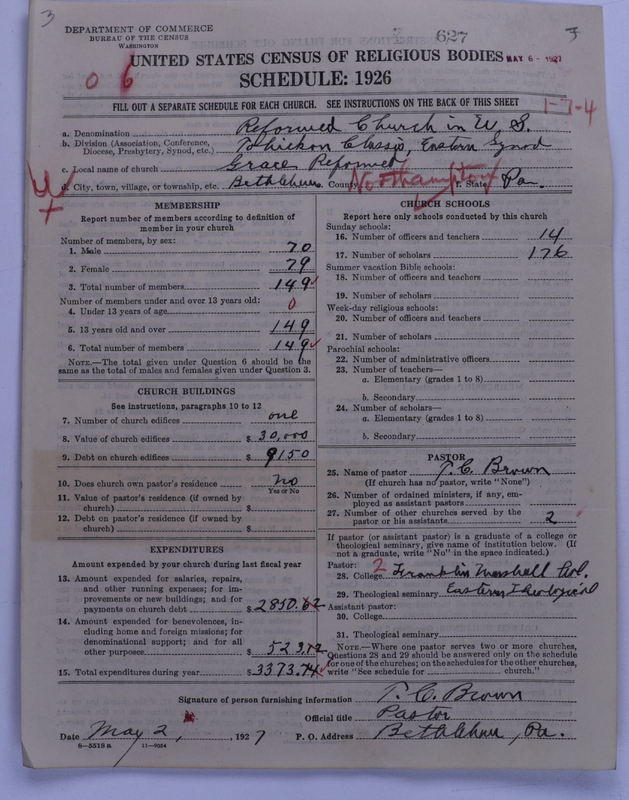 3
DEPARTMENT OF COMMERCE
BUREAU OF THE CENSUS
WASHINGTON
627
3
UNITED STATES CENSUS OF RELIGIOUS BODIES MAY 6 - 1927
0 6
SCHEDULE: 1926
FILL OUT A SEPARATE SCHEDULE FOR EACH CHURCH. SEE INSTRUCTIONS ON THE BACK OF THIS SHEET
1-7-4
a. Denomination Reformed Church in U.S.
b. Division (Association, Conference, Diocese, Presbytery, Synod, etc.) Tohickon Classis, Eastern Synod
c. Local name of church Grace Reformed
d. City, town, village, or township, etc. Bethlehem County Northampton State Pa.
MEMBERSHIP
Report number of members according to definition of
member in your church
Number of members, by sex:
1. Male 70
2. Female 79
3. Total number of members 149
Number of members under and over 13 years old:
4. Under 13 years of age 0
5. 13 years old and over 149
6. Total number of members 149
NOTE.—The total given under Question 6 should be the
same as the total of males and females given under Question 3.
CHURCH BUILDINGS
See instructions, paragraphs 10 to 12
7. Number of church edifices one
8. Value of church edifices $ 30,000
9. Debt on church edifices $ 9150
10. Does church own pastor's residence no
Yes or No
11. Value of pastor's residence (if owned by
church) $
12. Debt on pastor's residence (if owned by
church) $
EXPENDITURES
Amount expended by your church during last fiscal year
13. Amount expended for salaries, repairs,
and other running expenses; for im-
provements or new buildings; and for
payments on church debt $ 2850.62
14. Amount expended for benevolences, in-
cluding home and foreign missions; for
denominational support; and for all
other purposes $ 523.12
15. Total expenditures during year $ 3373.74
CHURCH SCHOOLS
Report here only schools conducted by this church
Sunday schools:
16. Number of officers and teachers 14
17. Number of scholars 176
Summer vacation Bible schools:
18. Number of officers and teachers
19. Number of scholars
Week-day religious schools:
20. Number of officers and teachers
21. Number of scholars
Parochial schools:
22. Number of administrative officers
23. Number of teachers—
a. Elementary (grades 1 to 8)
b. Secondary
24. Number of scholars—
a. Elementary (grades 1 to 8)
b. Secondary
PASTOR
25. Name of pastor T. C. Brown
(If church has no pastor, write "None")
26. Number of ordained ministers, if any, em-
ployed as assistant pastors
27. Number of other churches served by the
pastor or his assistants 2
If pastor (or assistant pastor) is a graduate of a college or
theological seminary, give name of institution below. (If
not a graduate, write "No" in the space indicated.)
Pastor: 2
28. College Franklin Marshall Col.
29. Theological seminary Eastern Theological
Assistant pastor:
30. College
31. Theological seminary
NOTE.—Where one pastor serves two or more churches,
Questions 28 and 29 should be answered only on the schedule
for one of the churches; on the schedules for the other churches,
write "See schedule for church."
Signature of person furnishing information T. C. Brown
Official title Pastor
Date May 2, 1927 P. O. Address Bethlehem, Pa.
8-5518 a 11-9554